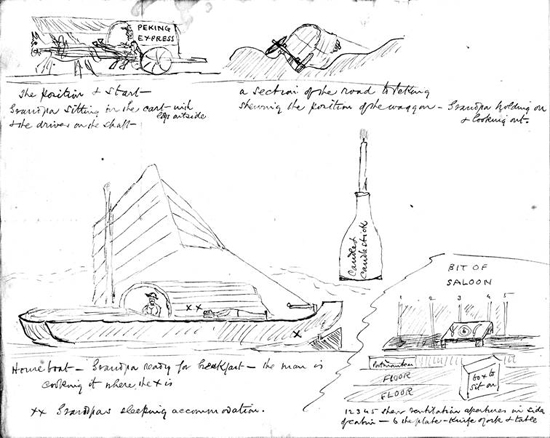 PEKING
EXPRESS
The position & start—
Grandpa sitting in the cart with
legs outside
& the driver on the shaft—
a section of the road to Peking
shewing the position of the waggon — Grandpa holding on
& looking out.
Candle &
Candlestick
BIT OF
SALOON
1 2 3 4 5
x x
x
House boat — Grandpa ready for breakfast — the man is
cooking it where the x is
xx Grandpa's sleeping accommodation.
FLOOR
FLOOR
box to
sit on
1 2 3 4 5 shew ventilation apertures in side
of cabin — & the plate — knife & fork & table